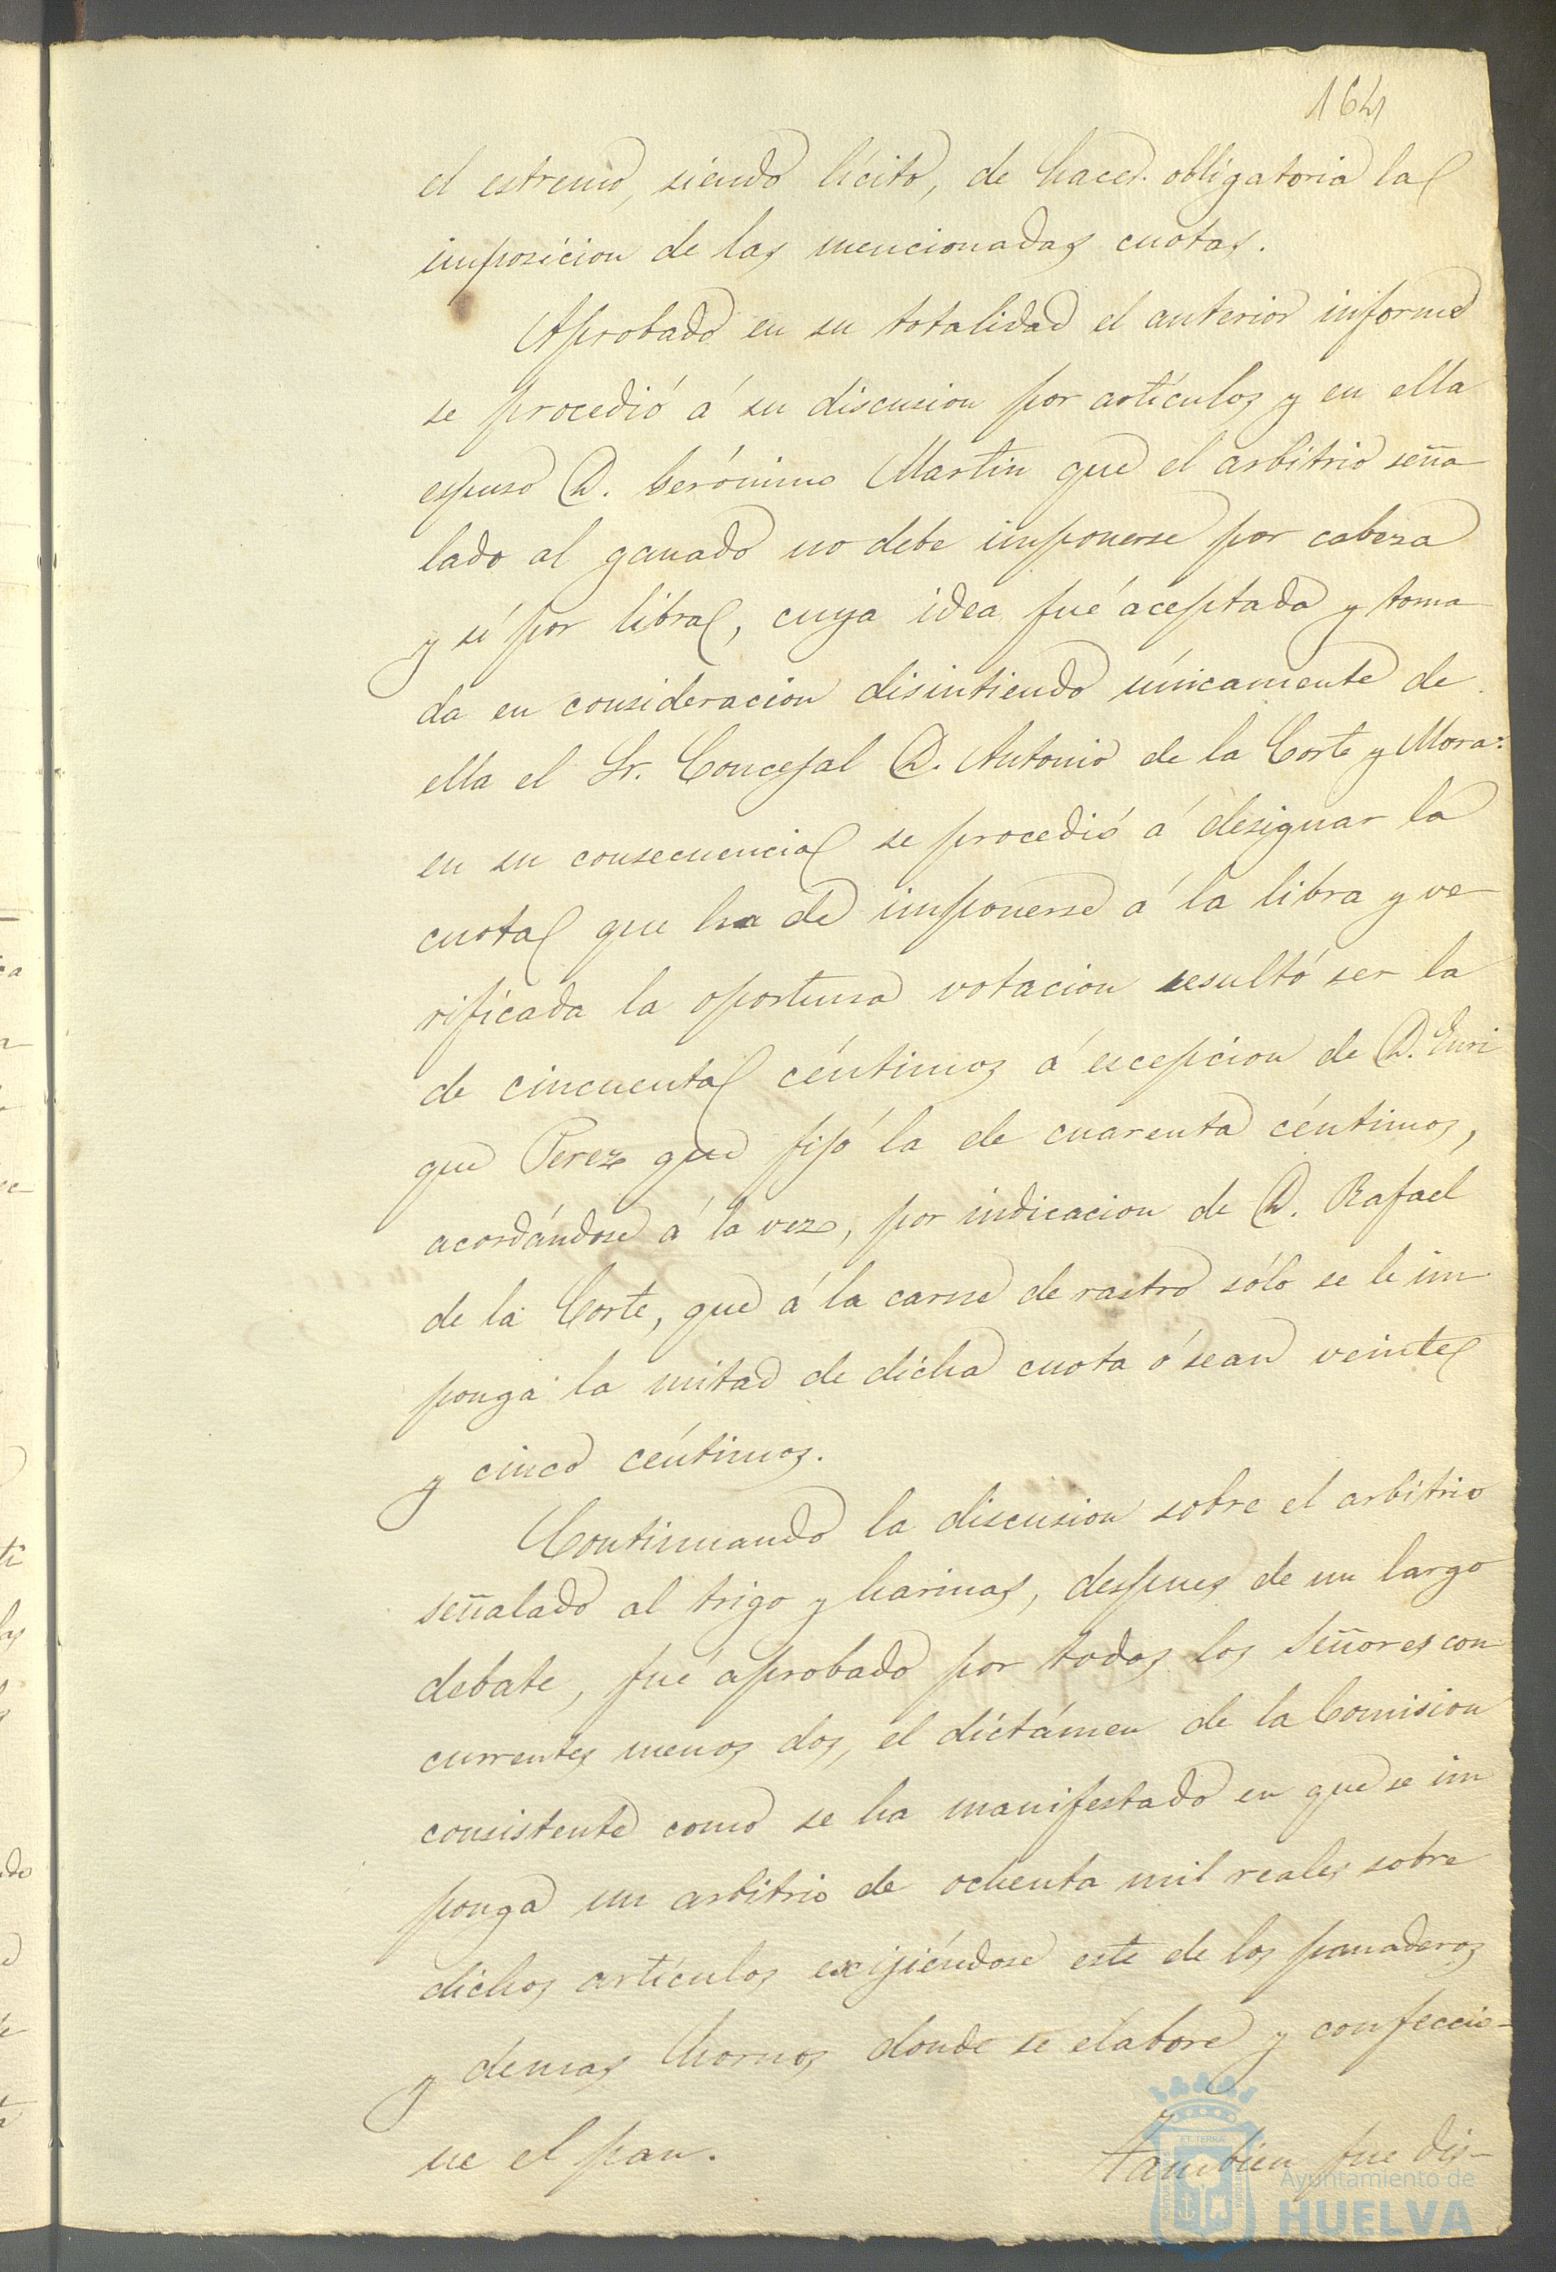 164
el estremo, siendo lícito, de hacer obligatoria la
imposicion de las mencionadas cuotas.
Aprobado en su totalidad el anterior informe
se procedió á su discusion por artículos y en ella
espuso D. Gerónimo Martin que el arbitrio seña
lado al ganado no debe imponerse por cabeza
y sí por libra, cuya idea fué aceptada y toma
da en consideracion disintiendo únicamente de
ella el Sr. Concejal D. Antonio de la Corte y Mora:
en su consecuencia se procedió á designar la
cuota que ha de imponerse á la libra y ve
rificada la oportuna votacion resultó ser la
de cincuenta céntimos á escepcion de D. Enri
que Perez que fijó la de cuarenta céntimos,
acordándose á la vez, por indicacion de D. Rafael
de la Corte, que á la carne de rastro sólo se le im
ponga la mitad de dicha cuota ó sean veinte
y cinco céntimos.
Continuando la discusion sobre el arbitrio
señalado al trigo y harinas, despues de un largo
debate, fué aprobado por todos los Señores con
currentes menos dos, el dictámen de la Comision
consistente como se ha manifestado en que se im
ponga un arbitrio de ochenta mil reales sobre
dichos artículos exijiéndose este de los panaderos
y demas hornos donde se elabore y confeccio-
ne el pan.
Tambien fue dis-
Ayuntamiento de
HUELVA